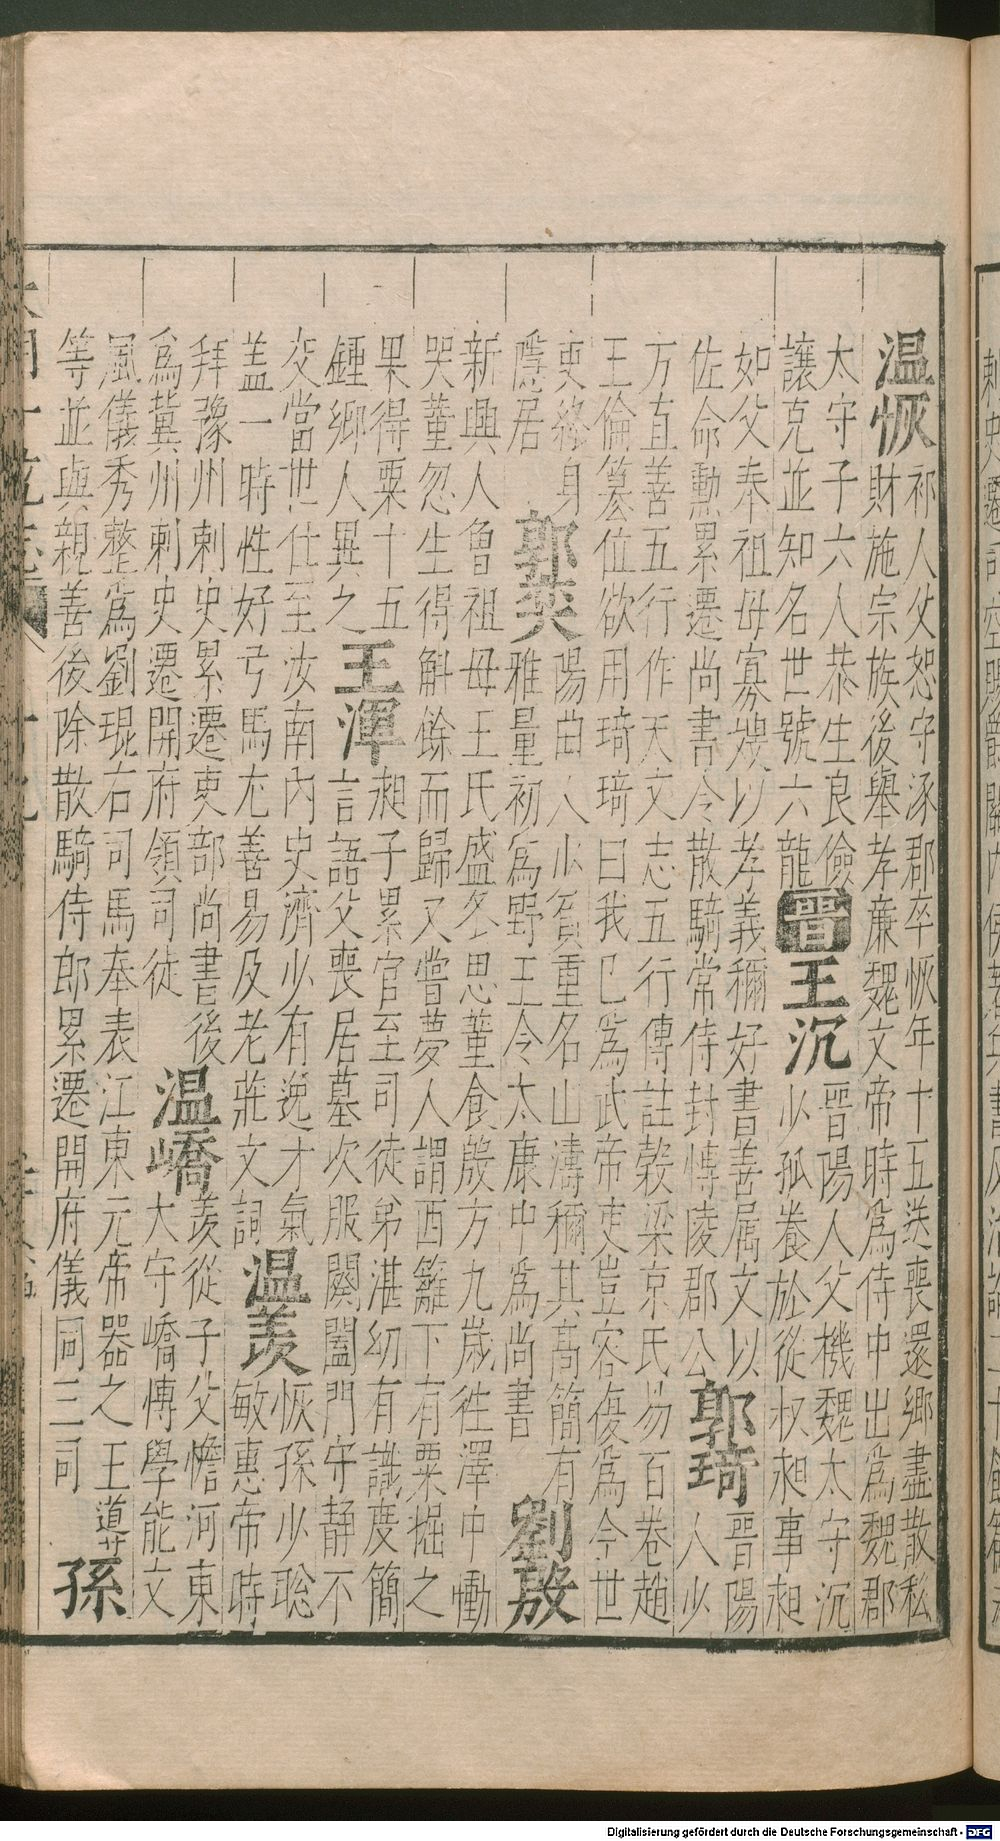 温恢
祁人父恕守涿郡卒恢年十五送喪還鄉盡散私
財施宗族後舉孝廉魏文帝時爲侍中出爲魏郡
太守子六人恭生良儉
讓克並知名世號六龍
晉
王沉
晉陽人父機魏太守沉
少孤養於從叔昶事昶
如父奉祖母寡嫂以孝義稱好書善属文以
佐命勳累遷尚書令散騎常侍封博陵郡公
郭琦
晉陽
人少
方直善五行作天文志五行傳註穀梁京氏易百卷趙
王倫簒位欲用琦琦曰我已爲武帝吏豈容復爲今世
吏終身
隱居
郭奕
陽曲人少負重名山濤稱其高簡有
雅量初爲野王令太康中爲尚書
劉殷
新興人曾祖母王氏盛冬思菫食殷方九歲徃澤中慟
哭菫忽生得斛餘而歸又嘗夢人謂西籬下有粟掘之
果得粟十五
鍾鄉人異之
王渾
昶子累官至司徒弟湛幼有識度簡
言語父喪居墓次服闋闔門守静不
交當世仕至汝南內史濟少有逸才氣
盖一時性好弓馬尤善易及老莊文詞
温羨
恢孫少聡
敏惠帝時
拜豫州刺史累遷吏部尚書後
爲冀州刺史遷開府領司徒
温嶠
羨從子父憺河東
大守嶠博學能文
風儀秀整爲劉琨右司馬奉表江東元帝器之王導
等並與親善後除散騎侍郎累遷開府儀同三司
孫
Digitalisierung gefördert durch die Deutsche Forschungsgemeinschaft - DFG